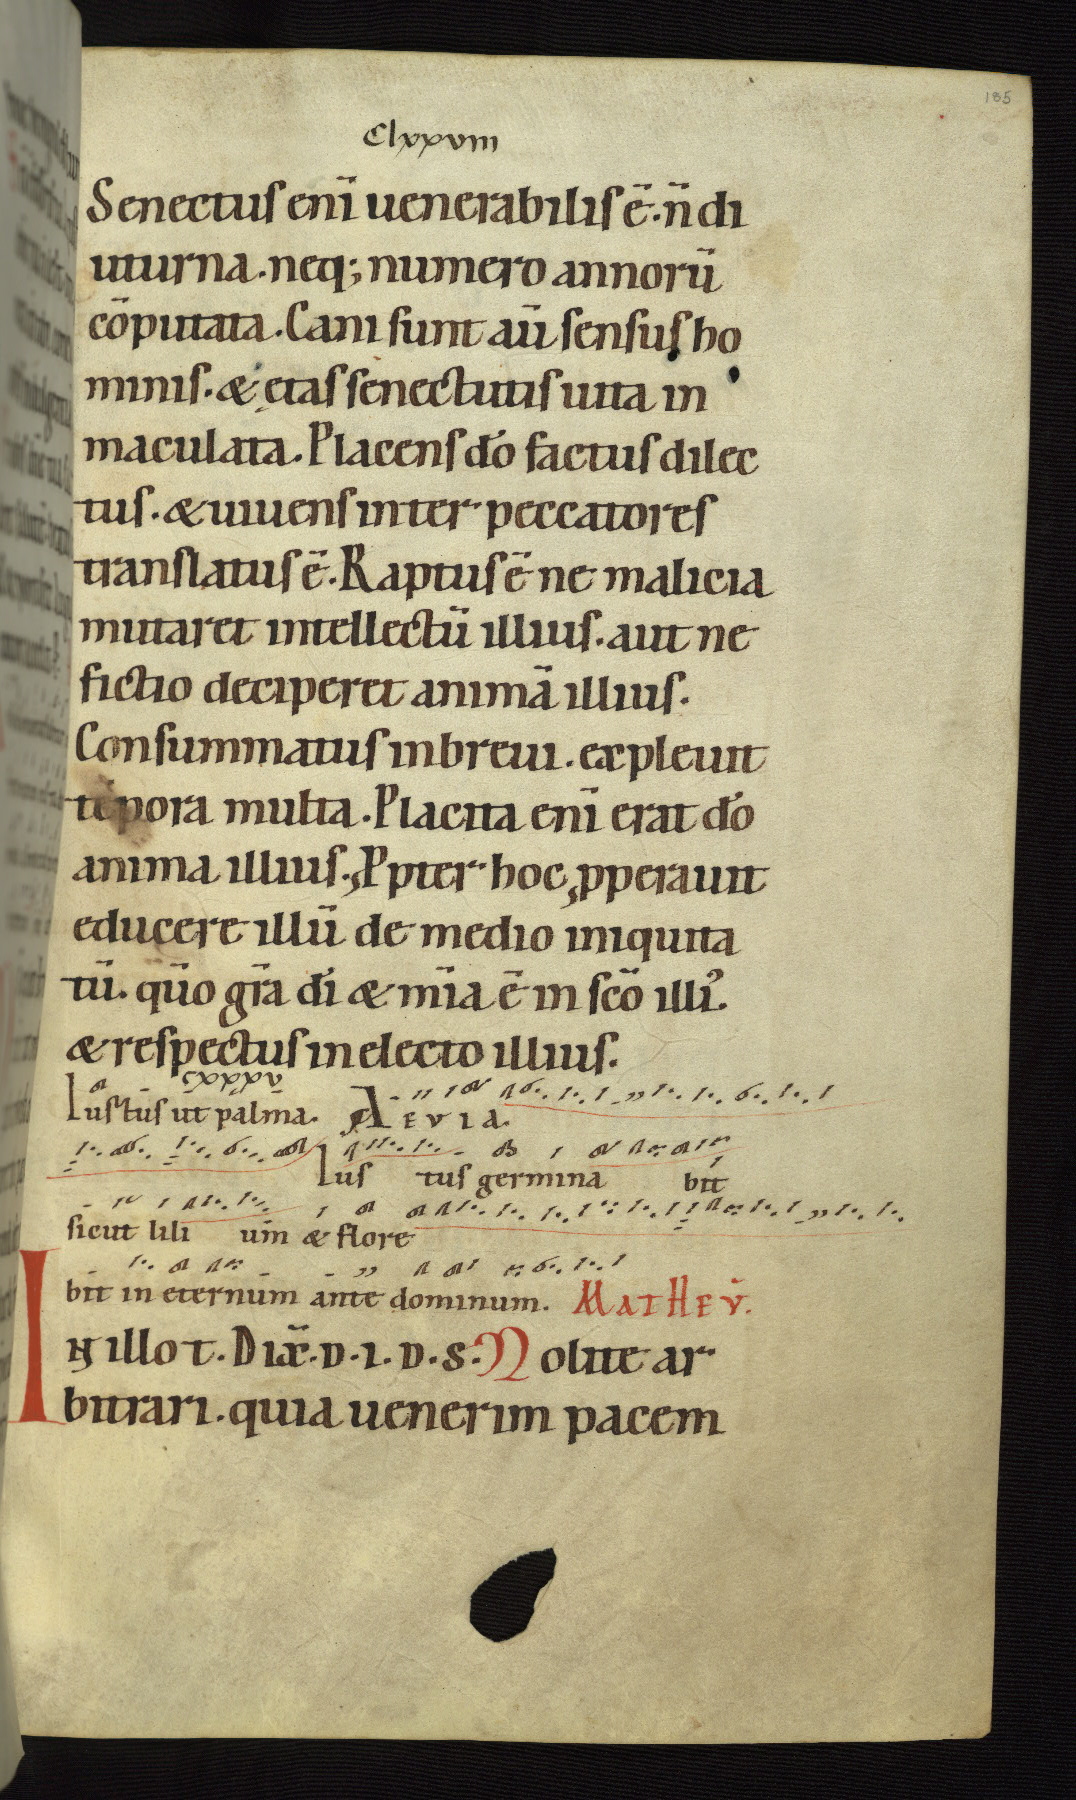 185
Clxxviii
Senectus eni͞ uenerabilis e͞. n͞ di
uturna. neq; numero annoru͞
co͞putata. Cani sunt au͞ sensus ho
minis. & ętas senectutis uita in
maculata. Placens do͞ factus dilec
tus. & uiuens inter peccatores
translatus e͞. Raptus e͞ ne malicia
mutaret intellectu͞ illius. aut ne
fictio deciperet anima͞ illius.
Consummatus in breui. expleuit
te͞pora multa. Placita eni͞ erat do͞
anima illius. Ꝓpter hoc ꝓperauit
educere illu͞ de medio iniquita
tu͞. qu͞o gr͞a di͞ & mi͞a e͞ in sc͞o illiꝰ.
& respectus in electo illius.
cxxxv
Iustus ut palma. Aeuia.
Ius tus germina bit
sicut lili um & flore
bit in eternum ante dominum. MATHEV̄.
IN illo t. Dix͞. D. I. D. S. Nolite ar
bitrari. quia uenerim pacem